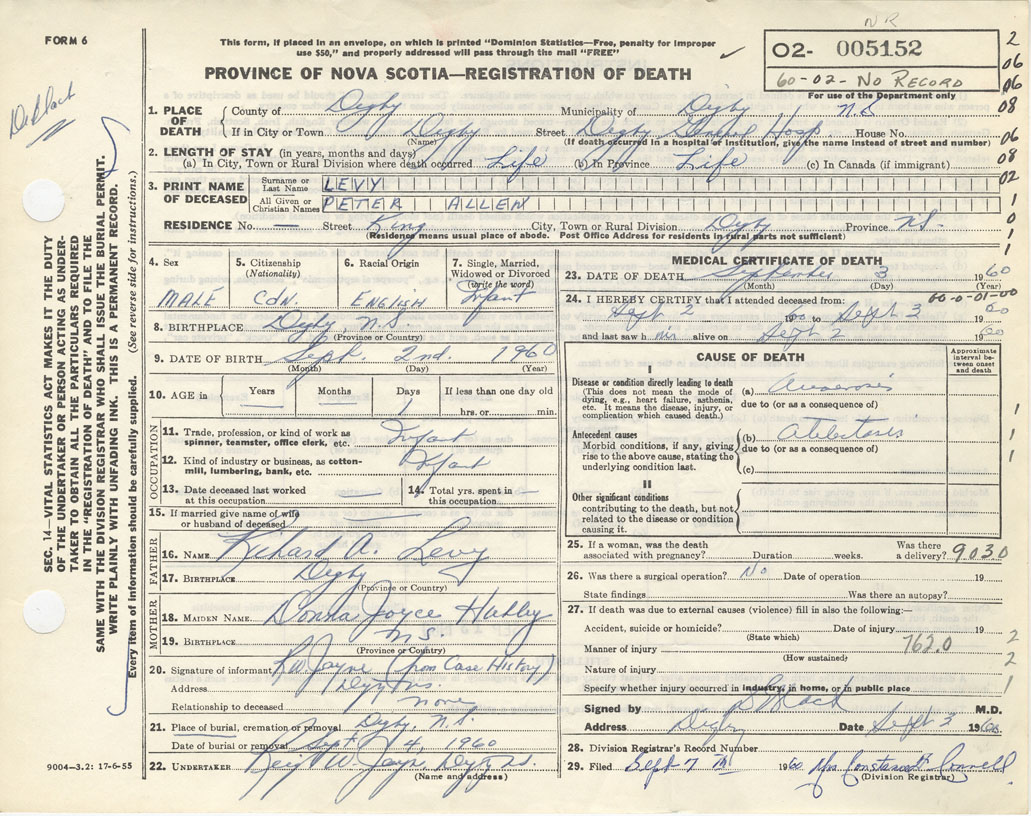 NR
FORM 6
This form, if placed in an envelope, on which is printed "Dominion Statistics—Free, penalty for improper
use $50," and properly addressed will pass through the mail "FREE"
O2- 005152
60-02- No Record
For use of the Department only
PROVINCE OF NOVA SCOTIA—REGISTRATION OF DEATH
2
06
06
08
06
08
02
1
0
1
1
1. PLACE OF DEATH County of Digby Municipality of Digby N.S
If in City or Town Digby Street Digby General Hosp House No.
(Name) (If death occurred in a hospital or institution, give the name instead of street and number)
2. LENGTH OF STAY (in years, months and days)
(a) In City, Town or Rural Division where death occurred Life (b) In Province Life (c) In Canada (if immigrant)
3. PRINT NAME OF DECEASED Surname or Last Name LEVY
All Given or Christian Names PETER ALLEN
RESIDENCE No. — Street King City, Town or Rural Division Digby Province N.S.
(Residence means usual place of abode. Post Office Address for residents in rural parts not sufficient)
4. Sex MALE
5. Citizenship (Nationality) CDN.
6. Racial Origin ENGLISH
7. Single, Married, Widowed or Divorced (write the word) Infant
8. BIRTHPLACE Digby, N.S.
(Province or Country)
9. DATE OF BIRTH Sept. 2nd. 1960
(Month) (Day) (Year)
10. AGE in Years — Months — Days 1 If less than one day old
hrs. or min.
OCCUPATION
11. Trade, profession, or kind of work as spinner, teamster, office clerk, etc. Infant
12. Kind of industry or business, as cotton-mill, lumbering, bank, etc. Infant
13. Date deceased last worked at this occupation —
14. Total yrs. spent in this occupation —
15. If married give name of wife or husband of deceased —
FATHER
16. NAME Richard A. Levy
17. BIRTHPLACE Digby
(Province or Country)
MOTHER
18. MAIDEN NAME Donna Joyce
19. BIRTHPLACE N.S.
(Province or Country)
20. Signature of informant R.W. Jayne (from Case History)
Address
Relationship to deceased none
21. Place of burial, cremation or removal Digby, N.S.
Date of burial or removal Sept 4, 1960
22. UNDERTAKER
(Name and address)
MEDICAL CERTIFICATE OF DEATH
23. DATE OF DEATH September 3 1960
(Month) (Day)
24. I HEREBY CERTIFY that I attended deceased from: 60-0-01-00
Sept 2 1960 to Sept 3 1960
and last saw him alive on Sept 2 1960
CAUSE OF DEATH
Approximate interval between onset and death
I
Disease or condition directly leading to death (This does not mean the mode of dying, e.g., heart failure, asthenia, etc. It means the disease, injury, or complication which caused death.)
(a)
due to (or as a consequence of)
Antecedent causes
Morbid conditions, if any, giving rise to the above cause, stating the underlying condition last.
(b)
due to (or as a consequence of)
(c)
1
1
1
II
Other significant conditions contributing to the death, but not related to the disease or condition causing it.
25. If a woman, was the death associated with pregnancy? Duration weeks. Was there a delivery? 9030
26. Was there a surgical operation? No Date of operation 19
State findings Was there an autopsy?
27. If death was due to external causes (violence) fill in also the following:—
Accident, suicide or homicide? Date of injury 19
(State which)
Manner of injury 762.0
(How sustained)
Nature of injury
2
2
1
Specify whether injury occurred in industry, in home, or in public place
Signed by M.D.
Address Digby Date Sept 3 1960
28. Division Registrar's Record Number
29. Filed Sept 7th 1960 Mrs Constance
(Division Registrar)
SEC. 14—VITAL STATISTICS ACT MAKES IT THE DUTY
OF THE UNDERTAKER OR PERSON ACTING AS UNDER-
TAKER TO OBTAIN ALL THE PARTICULARS REQUIRED
IN THE "REGISTRATION OF DEATH" AND TO FILE THE
SAME WITH THE DIVISION REGISTRAR WHO SHALL ISSUE THE BURIAL PERMIT.
WRITE PLAINLY WITH UNFADING INK. THIS IS A PERMANENT RECORD.
Every item of information should be carefully supplied. (See reverse side for instructions.)
9004—3.2: 17-6-55